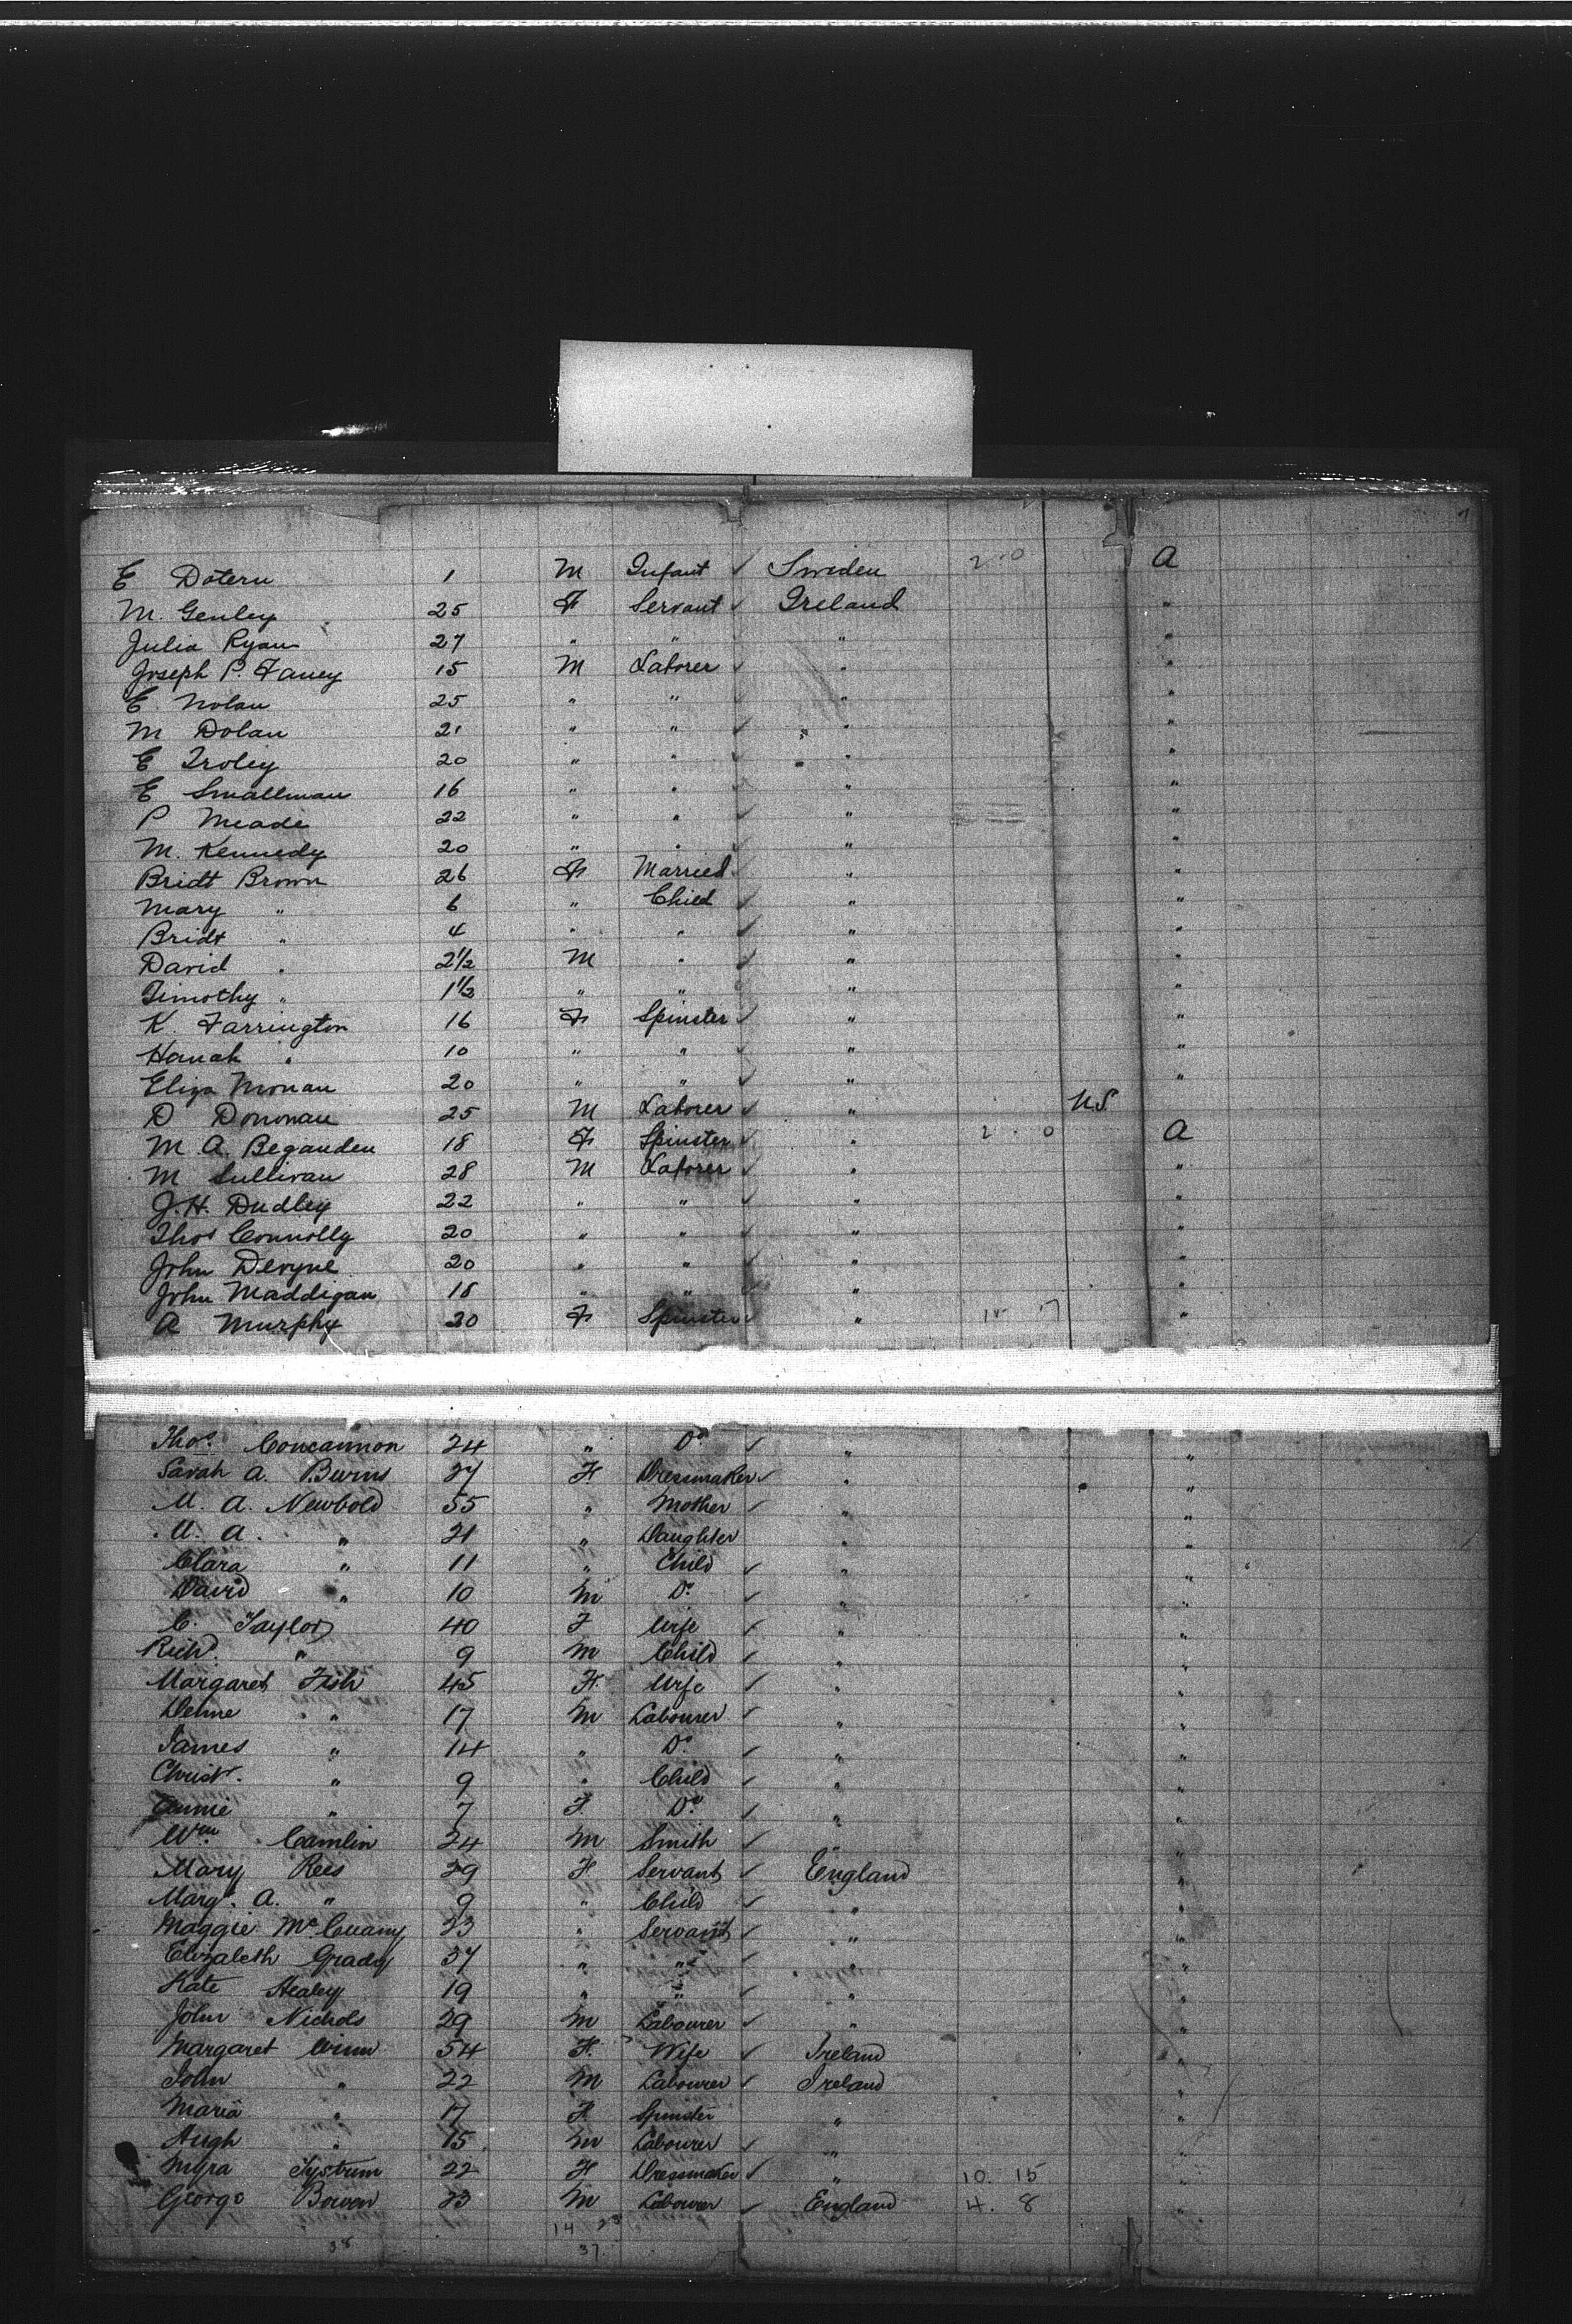 E Dotern 1 M Infant ✓ Sweden 2 . 0 A
M. Genley 25 F Servant ✓ Ireland "
Julia Ryan 27 " " "  "
Joseph P. Faney 15 M Laborer ✓ " "
E. Nolan 25 " " ✓ " "
M Dolan 21 " " ✓ " "
E Troley 20 " " " "
E Smallman 16 " " ✓ " "
P Meade 22 " " ✓ " "
M. Kennedy 20 " " ✓ " "
Bridt Brown 26 F Married ✓ " "
Mary " 6 " Child ✓ " "
Bridt " 4 " " ✓ " "
David " 2½ M " ✓ " "
Timothy " 1½ " " ✓ " "
K. Farrington 16 F Spinster ✓ " "
Hanah " 10 " " ✓ " "
Eliza Monan 20 " " ✓ " "
D Dononau 25 M Laborer ✓ " U.S.
M. A. Beganden 18 F Spinster ✓ " 2 . 0 A
M Sullivan 28 M Laborer ✓ " "
J. H. Dudley 22 " " ✓ " "
Thos Connolly 20 " " ✓ " "
John Devyne 20 " " ✓ " "
John Maddigan 18 " " ✓ " "
A Murphy 20 F Spinster ✓ " 17 "
Thos. Concannon 24 " Do. ✓ " "
Sarah A. Burns 27 F. Dressmaker ✓ " "
M. A. Newbold 55 " Mother ✓ " "
M. A. " 21 " Daughter " "
Clara " 11 " Child ✓ " "
David " 10 M Do. ✓ " "
C. Taylor 40 F Wife ✓ " "
Richd. " 9 M Child ✓ " "
Margaret Fish 45 F. Wife ✓ " "
" 17 M Labourer ✓ " "
James " 14 " Do. ✓ " "
Christr. " 9 " Child ✓ " "
Annie " 7 F. Do. ✓ " "
Wm. Camlin 24 M Smith ✓ " "
Mary Rees 29 F Servant ✓ England "
Margt. A. " 9 " Child ✓ " "
Maggie 23 " Servant ✓ " "
Elizabeth Grady 37 " " ✓ " "
Kate Healey 19 " " ✓ " "
John Nichols 29 M Labourer ✓ " "
Margaret Winn 54 F. Wife ✓ Ireland "
John " 22 M Labourer ✓ Ireland "
Maria " 17 F Spinster " "
Hugh " 15 M Labourer ✓ " "
Myra 22 F Dressmaker ✓ " 10. 15 "
George Bowen 23 M Labourer ✓ England 4. 8 "
14 23
38 37.